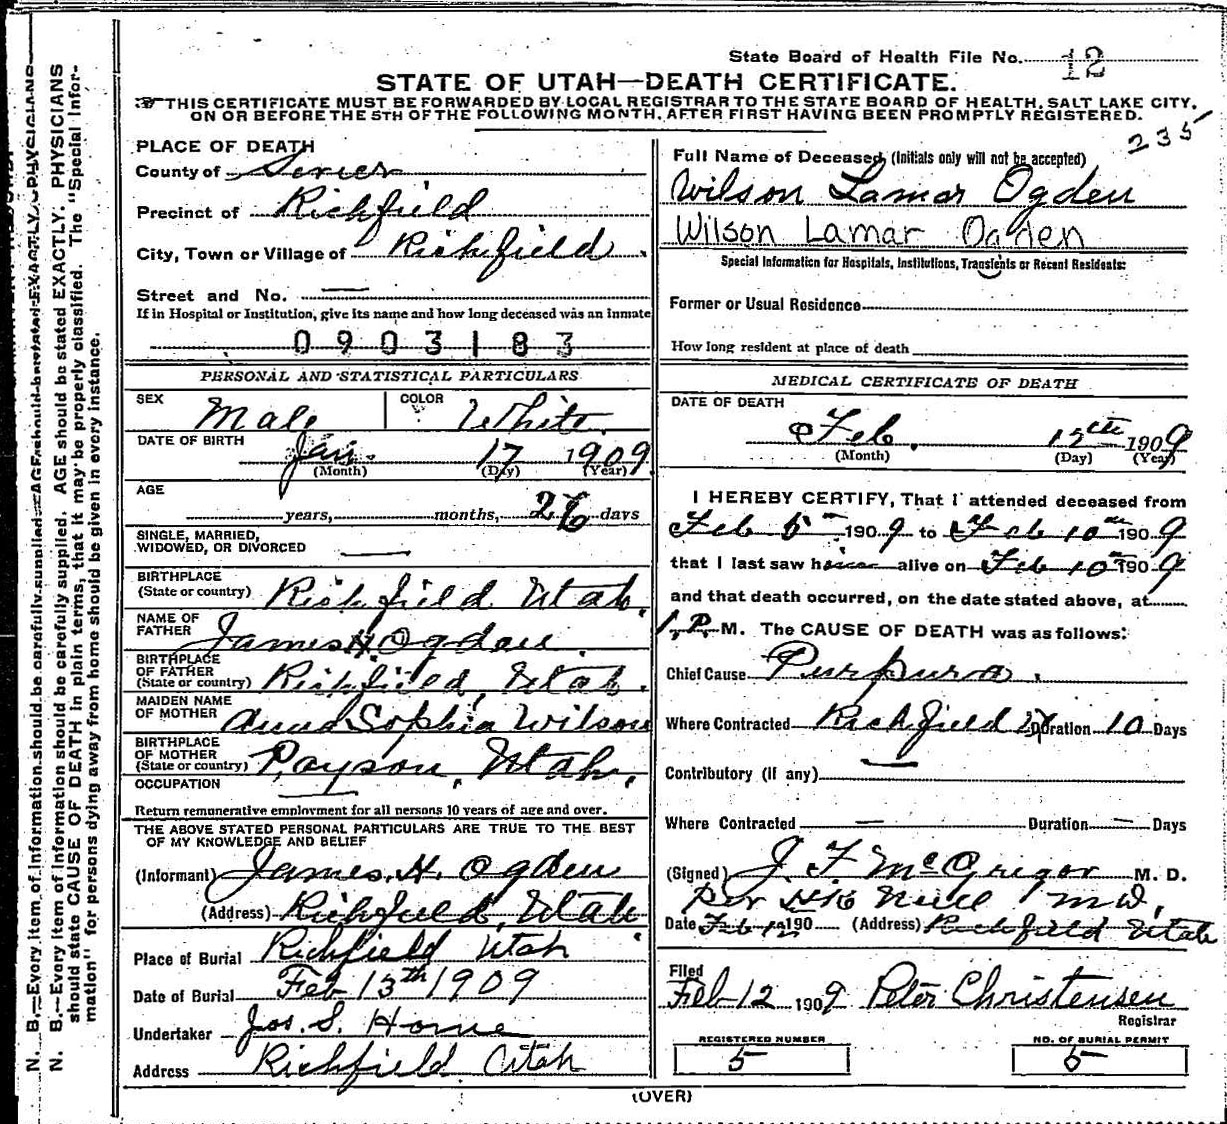 State Board of Health File No. 12
STATE OF UTAH—DEATH CERTIFICATE.
THIS CERTIFICATE MUST BE FORWARDED BY LOCAL REGISTRAR TO THE STATE BOARD OF HEALTH, SALT LAKE CITY,
ON OR BEFORE THE 5TH OF THE FOLLOWING MONTH, AFTER FIRST HAVING BEEN PROMPTLY REGISTERED.
235
PLACE OF DEATH
County of Sevier
Precinct of Richfield
City, Town or Village of Richfield
Street and No. —
If in Hospital or Institution, give its name and how long deceased was an inmate
0903183
PERSONAL AND STATISTICAL PARTICULARS
SEX Male COLOR White
DATE OF BIRTH Jan. 17 1909
(Month) (Day) (Year)
AGE
years, months, 26 days
SINGLE, MARRIED,
WIDOWED, OR DIVORCED —
BIRTHPLACE
(State or country) Richfield Utah.
NAME OF
FATHER James H. Ogden.
BIRTHPLACE
OF FATHER
(State or country) Richfield, Utah.
MAIDEN NAME
OF MOTHER Anna Sophia Wilson
BIRTHPLACE
OF MOTHER
(State or country) Payson, Utah.
OCCUPATION —
Return remunerative employment for all persons 10 years of age and over.
THE ABOVE STATED PERSONAL PARTICULARS ARE TRUE TO THE BEST
OF MY KNOWLEDGE AND BELIEF
(Informant) James. H. Ogden
(Address) Richfield, Utah
Place of Burial Richfield Utah
Date of Burial Feb 13th 1909
Undertaker Jos. S. Horne
Address Richfield Utah
Full Name of Deceased, (Initials only will not be accepted)
Wilson Lamar Ogden
Wilson Lamar Ogden
Special Information for Hospitals, Institutions, Transients or Recent Residents:
Former or Usual Residence
How long resident at place of death
MEDICAL CERTIFICATE OF DEATH
DATE OF DEATH
Feb. 12th 1909
(Month) (Day) (Year)
I HEREBY CERTIFY, That I attended deceased from
Feb 1909 to Feb 10th 1909
that I last saw h alive on Feb 10th 1909
and that death occurred, on the date stated above, at
1 P. M. The CAUSE OF DEATH was as follows:
Chief Cause Purpura.
Where Contracted Richfield Duration 10 Days
Contributory (if any) —
Where Contracted — Duration — Days
(Signed) J. F. McGregor M. D.
Per M D,
Date Feb 12 190 (Address) Richfield Utah
Filed
Feb 12 1909 Peter Christensen
Registrar
REGISTERED NUMBER
5
NO. OF BURIAL PERMIT
5
(OVER)
N. B.—Every item of information should be carefully supplied. AGE should be stated EXACTLY. PHYSICIANS
N. B.—Every item of information should be carefully supplied. AGE should be stated EXACTLY. PHYSICIANS
should state CAUSE OF DEATH in plain terms, that it may be properly classified. The "Special Infor-
mation" for persons dying away from home should be given in every instance.